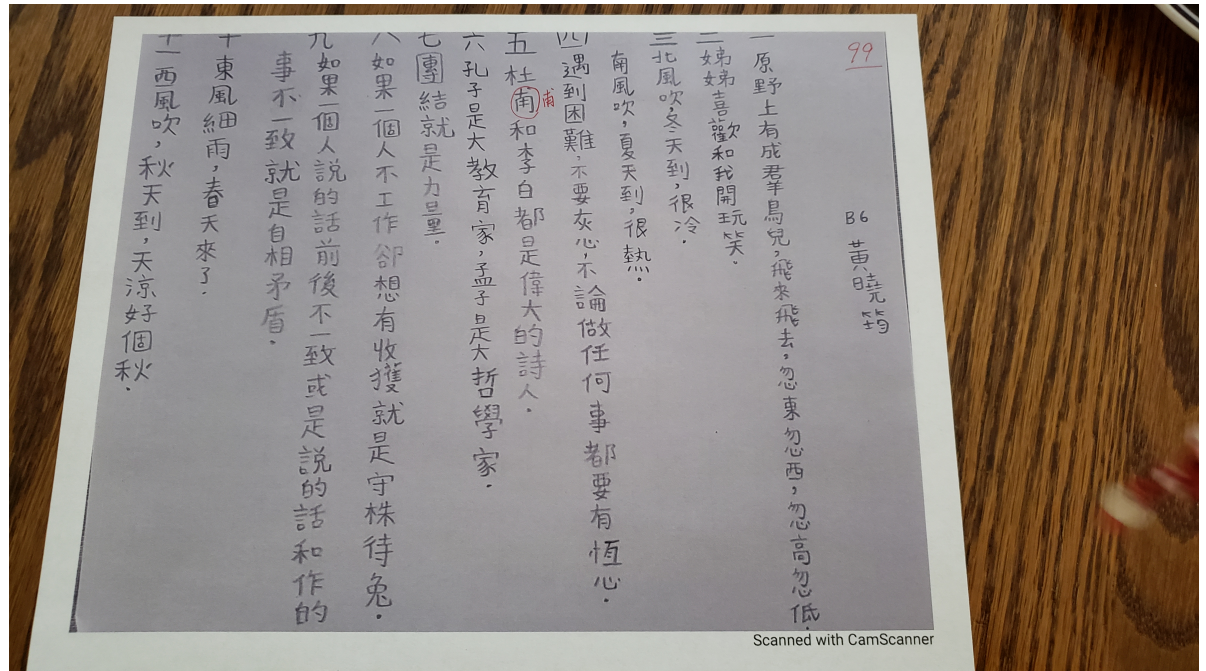 99
B6 黃曉筠
一 原野上有成羣鳥兒,飛來飛去,忽東忽西,忽高忽低.
二 娣娣喜歡和我開玩笑.
三 北風吹,冬天到,很冷.
南風吹,夏天到,很熱.
四 遇到困難,不要灰心,不論做任何事都要有恆心.
五 杜甫和李白都是偉大的詩人.
甫
六 孔子是大教育家,孟子是大哲學家.
七 團結就是力量.
八 如果一個人不工作卻想有收獲就是守株待兔.
九 如果一個人說的話前後不一致或是說的話和作的
事不一致就是自相矛盾.
十 東風細雨,春天來了.
十一 西風吹,秋天到,天涼好個秋.
Scanned with CamScanner